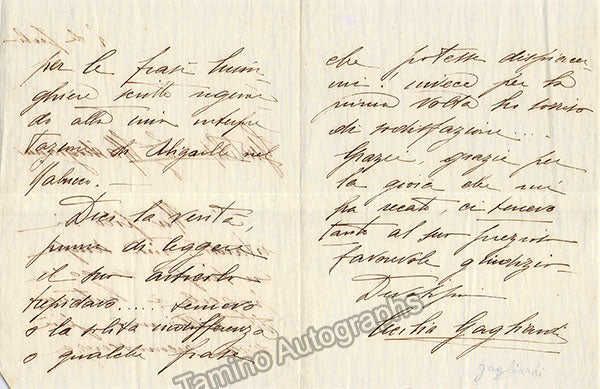 per le frasi lusin
ghiere scritte riguar
do alla mia interpre
tazione di Abigaille nel
Nabucco.—
Dico la verità,
prima di leggere
il suo articolo
trepidavo..... temevo
o la solita indifferenza
o qualche frase
che potesse dispiacer
mi! invece per la
prima volta ho sorriso
di soddisfazione....
Grazie, grazie per
la gioia che mi
ha recato, ci tenevo
tanto al suo prezioso
favorevole giudizio
Cecilia Gagliardi
gagliardi
Tamino Autographs